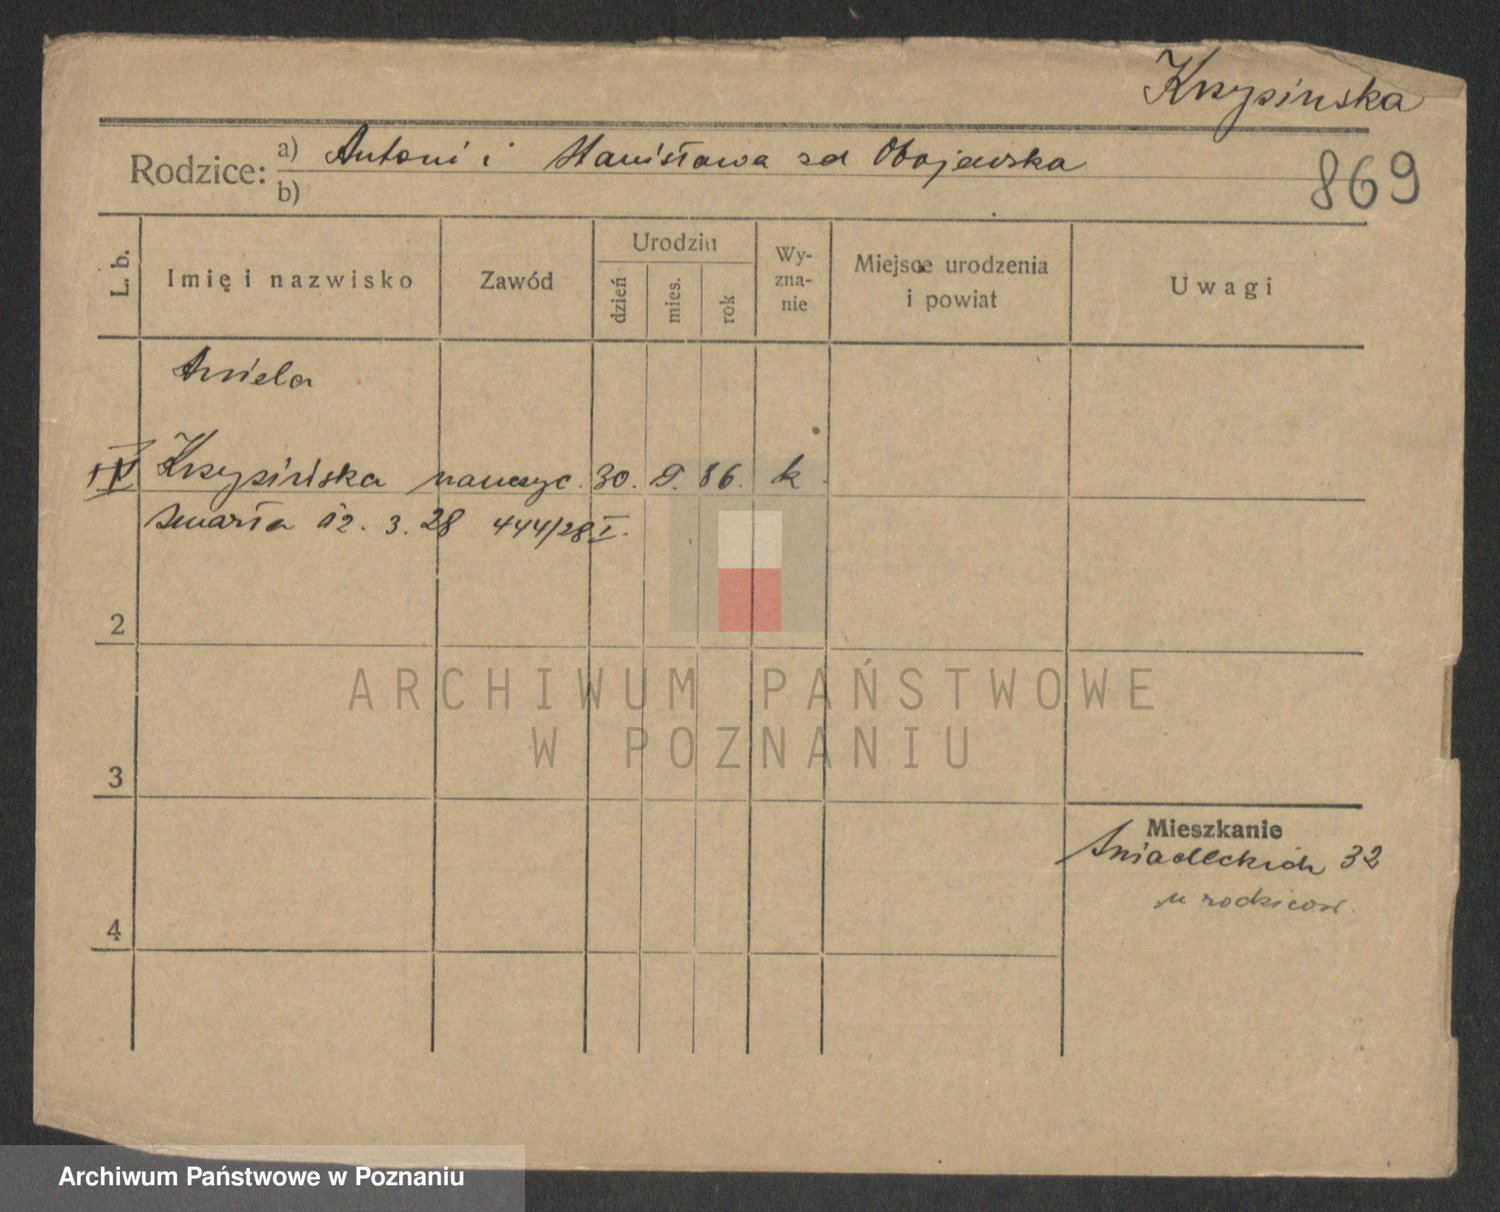 Krzysińska
Rodzice: a) Antoni i Stanisława zd Obojewska
869
b)
L. b.
Imię i nazwisko
Zawód
Urodzin
dzień
mies.
rok
Wy-
zna-
nie
Miejsce urodzenia
i powiat
Uwagi
Aniela
Krzysińska nauczyc. 30. 9. 86. k
zmarła 12. 3. 28 444/28 I.
2
3
4
Mieszkanie
Śniadeckich 32
u rodziców.
ARCHIWUM PAŃSTWOWE
W POZNANIU
Archiwum Państwowe w Poznaniu